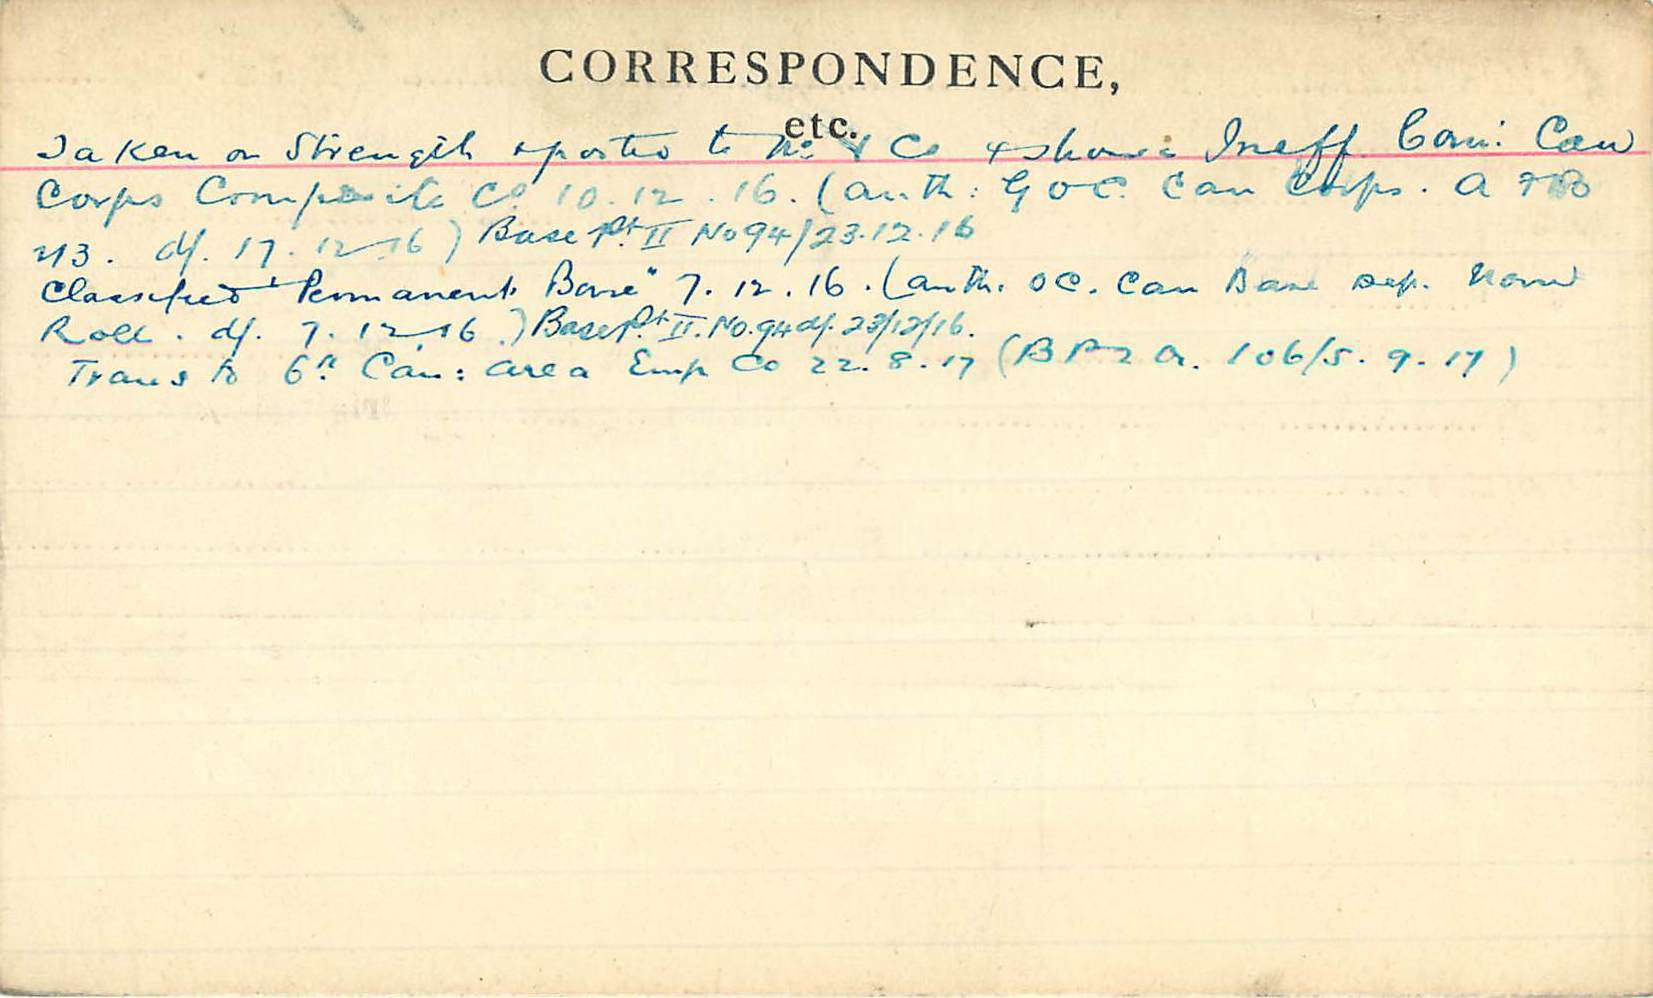 CORRESPONDENCE,
etc.
Taken on Strength & posted to No. Co & shown Ineff. Can
Corps Composite Co 10.12.16. (auth: GOC. Can Corps. A
d/. 17.12.16) Base Pt. II No 94/23.12.16
Classified "Permanent Base" 7.12.16. (auth. OC. Can Base Dep. Nom
Roll. d/. 7.12.16.) Base Pt. II. No. 94 d/. 23/12/16.
Trans to 6th Can: Area Emp Co 22.8.17 (B P2 O. 106/5.9.17)